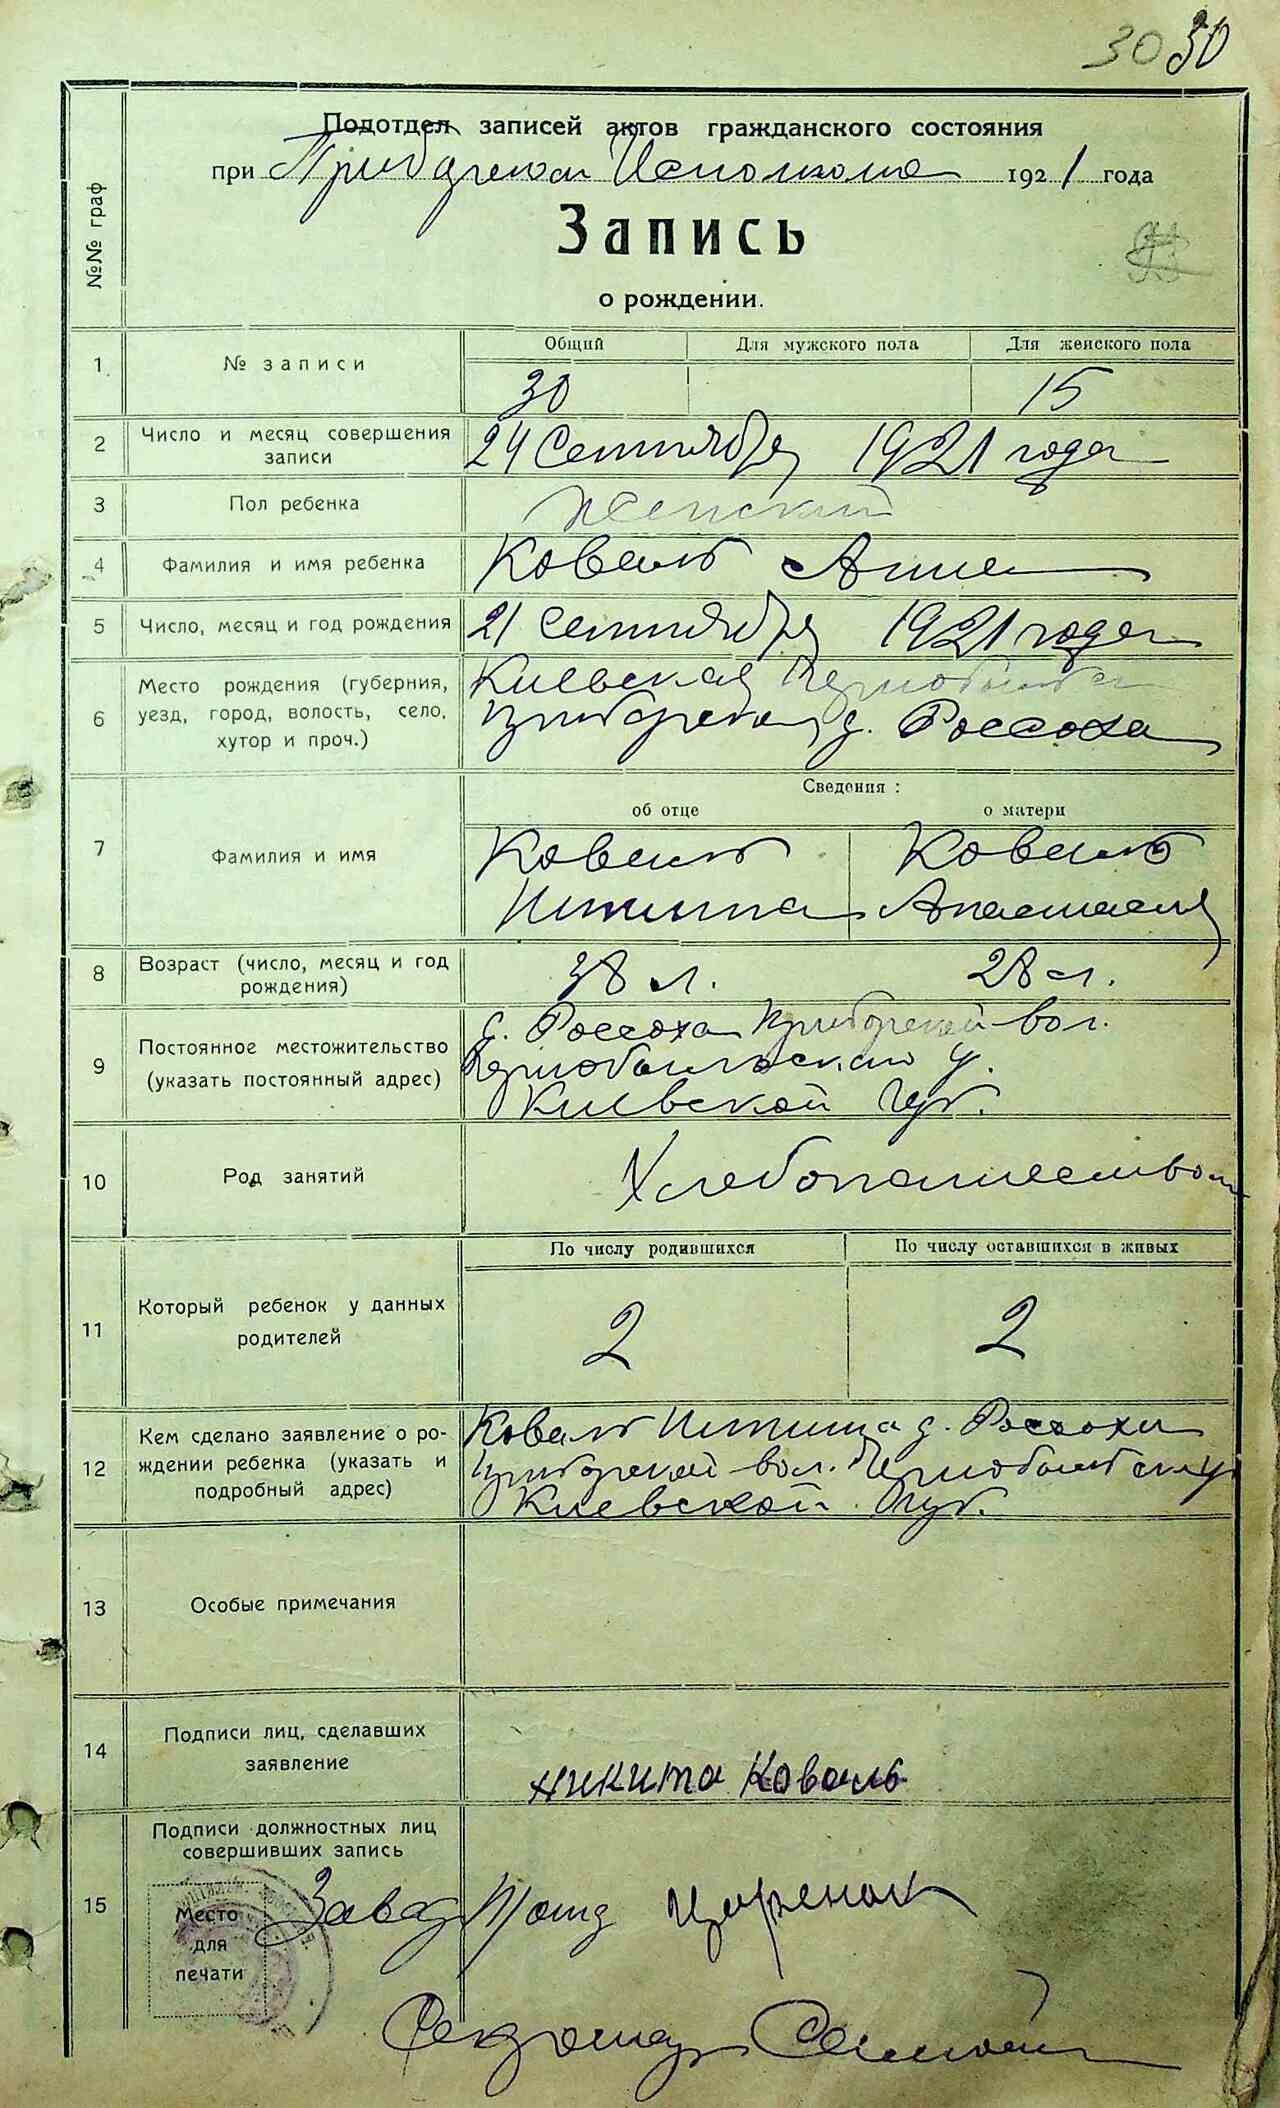 30 30
№№ граф
Подотдел записей актов гражданского состояния
при Прибарском Исполкоме 1921 года
Запись
о рождении.
1 № записи Общий Для мужского пола Для женского пола
30 15
2 Число и месяц совершения
записи
24 Сентября 1921 года
3 Пол ребенка Женский
4 Фамилия и имя ребенка Коваль Анна
5 Число, месяц и год рождения 21 Сентября 1921 года
6 Место рождения (губерния,
уезд, город, волость, село,
хутор и проч.)
Киевская Чернобыльск
д. Россоха
Сведения:
об отце о матери
7 Фамилия и имя
Коваль Коваль
Никита Анастасия
8 Возраст (число, месяц и год
рождения)
38 л. 28 л.
9 Постоянное местожительство
(указать постоянный адрес)
д. Россоха Прибарской вол.
Чернобыльского у.
Киевской губ.
10 Род занятий Хлебопашеством
11 Который ребенок у данных
родителей
По числу родившихся По числу оставшихся в живых
2 2
12 Кем сделано заявление о ро-
ждении ребенка (указать и
подробный адрес)
Коваль Никита д. Россохи
Прибарской вол. Чернобыльск у
Киевской губ.
13 Особые примечания
14 Подписи лиц, сделавших
заявление
никита Коваль
15 Подписи должностных лиц
совершивших запись
Место
для
печати
Завед
Секретарь